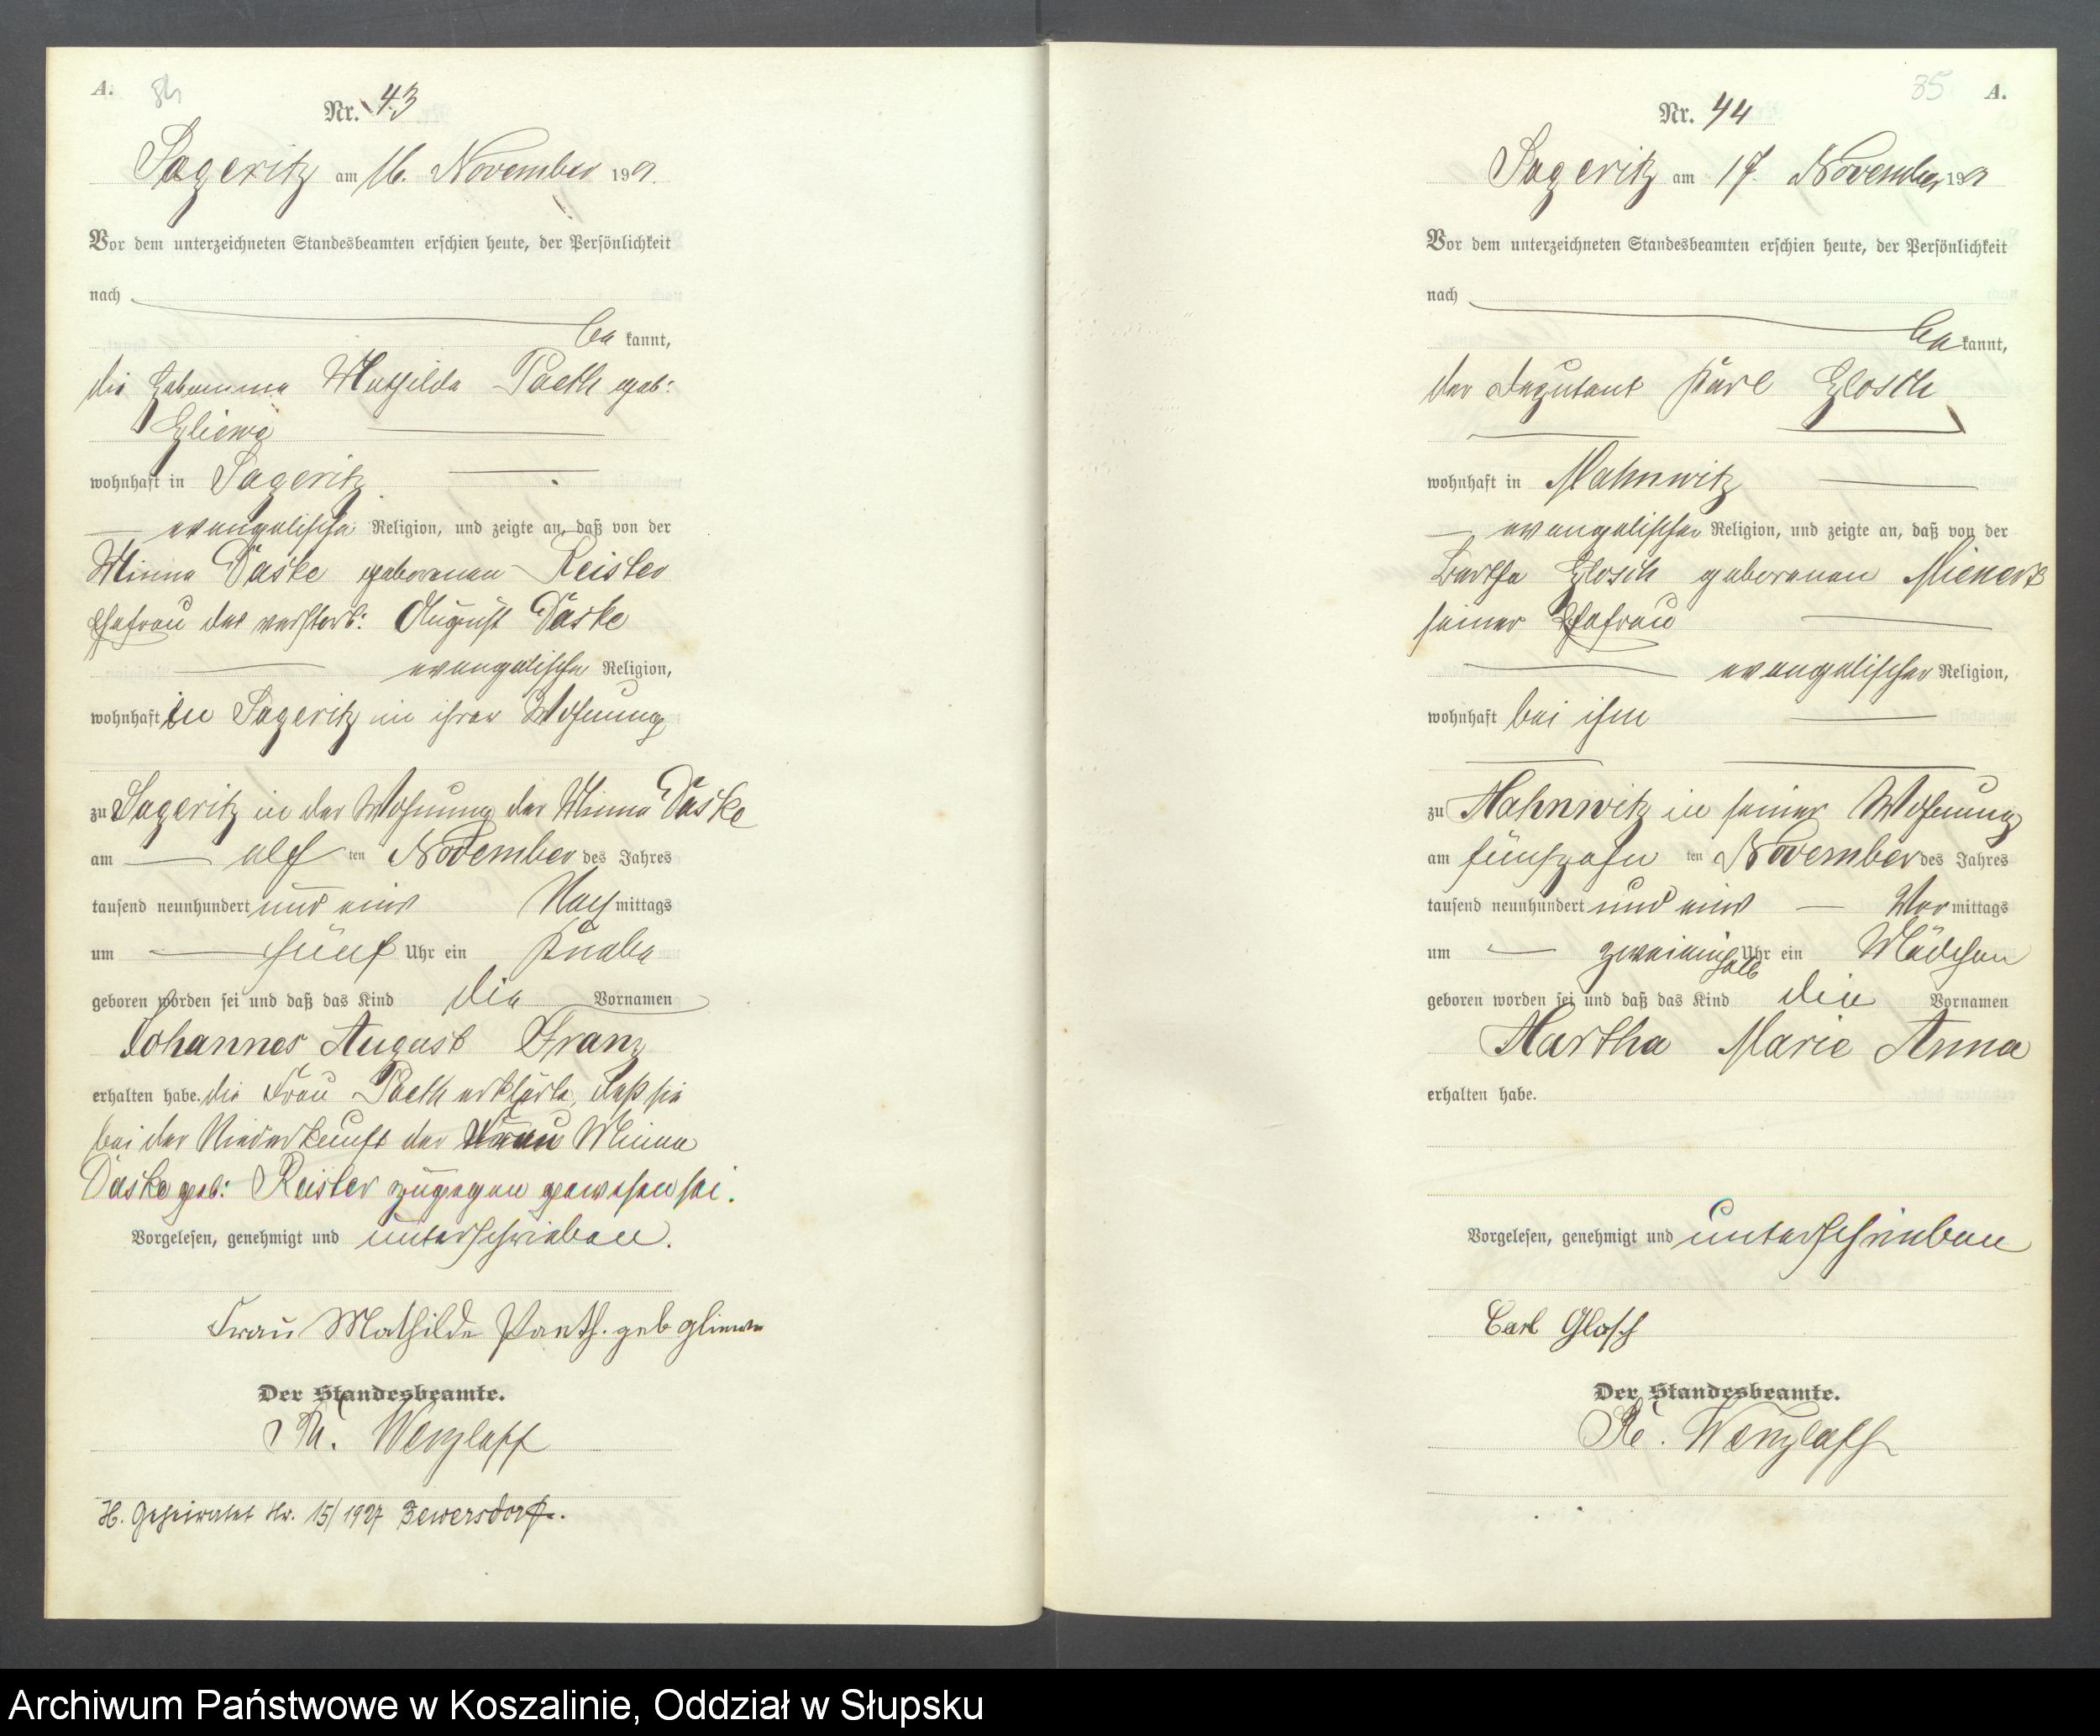 A.
84
Nr. 43
Sageritz am 16. November 1901.
Vor dem unterzeichneten Standesbeamten erschien heute, der Persönlichkeit
nach
be kannt,
die Hebamme Mathilde Paeth geb:
Gliewe
wohnhaft in Sageritz
evangelische Religion, und zeigte an, daß von der
Minna Daske geborenen Reister
Ehefrau des verstorb: August Daske
evangelische Religion,
wohnhaft in Sageritz in ihrer Wohnung
zu Sageritz in der Wohnung der Minna Daske
am elf ten November des Jahres
tausend neunhundert und eins Nach mittags
um fünf Uhr ein Knabe
geboren worden sei und daß das Kind die Vornamen
Johannes August Franz
erhalten habe. die Frau Paeth erklärte, daß sie
bei der Niederkunft der Minna
Daske geb: Reister zugegen gewesen sei.
Vorgelesen, genehmigt und unterschrieben.
Frau Mathilde Paeth. geb gliewe
Der Standesbeamte.
Wenzlaff
H. Geheiratet Nr. 15/1927 Zewersdorf.
35 A.
Nr. 44
Sageritz am 17. November 1901
Vor dem unterzeichneten Standesbeamten erschien heute, der Persönlichkeit
nach
be kannt,
der Deputant Karl Glosch
wohnhaft in Mahnwitz
evangelischer Religion, und zeigte an, daß von der
Bertha Glosch geborenen Mienert
seiner Ehefrau
evangelischer Religion,
wohnhaft bei ihm
zu Mahnwitz in seiner Wohnung
am fünfzehn ten November des Jahres
tausend neunhundert und eins Vor mittags
um zweieinhalb Uhr ein Mädchen
geboren worden sei und daß das Kind die Vornamen
Martha Marie Anna
erhalten habe.
Vorgelesen, genehmigt und unterschrieben
Carl Glosch
Der Standesbeamte.
Wenzlaff
Archiwum Państwowe w Koszalinie, Oddział w Słupsku